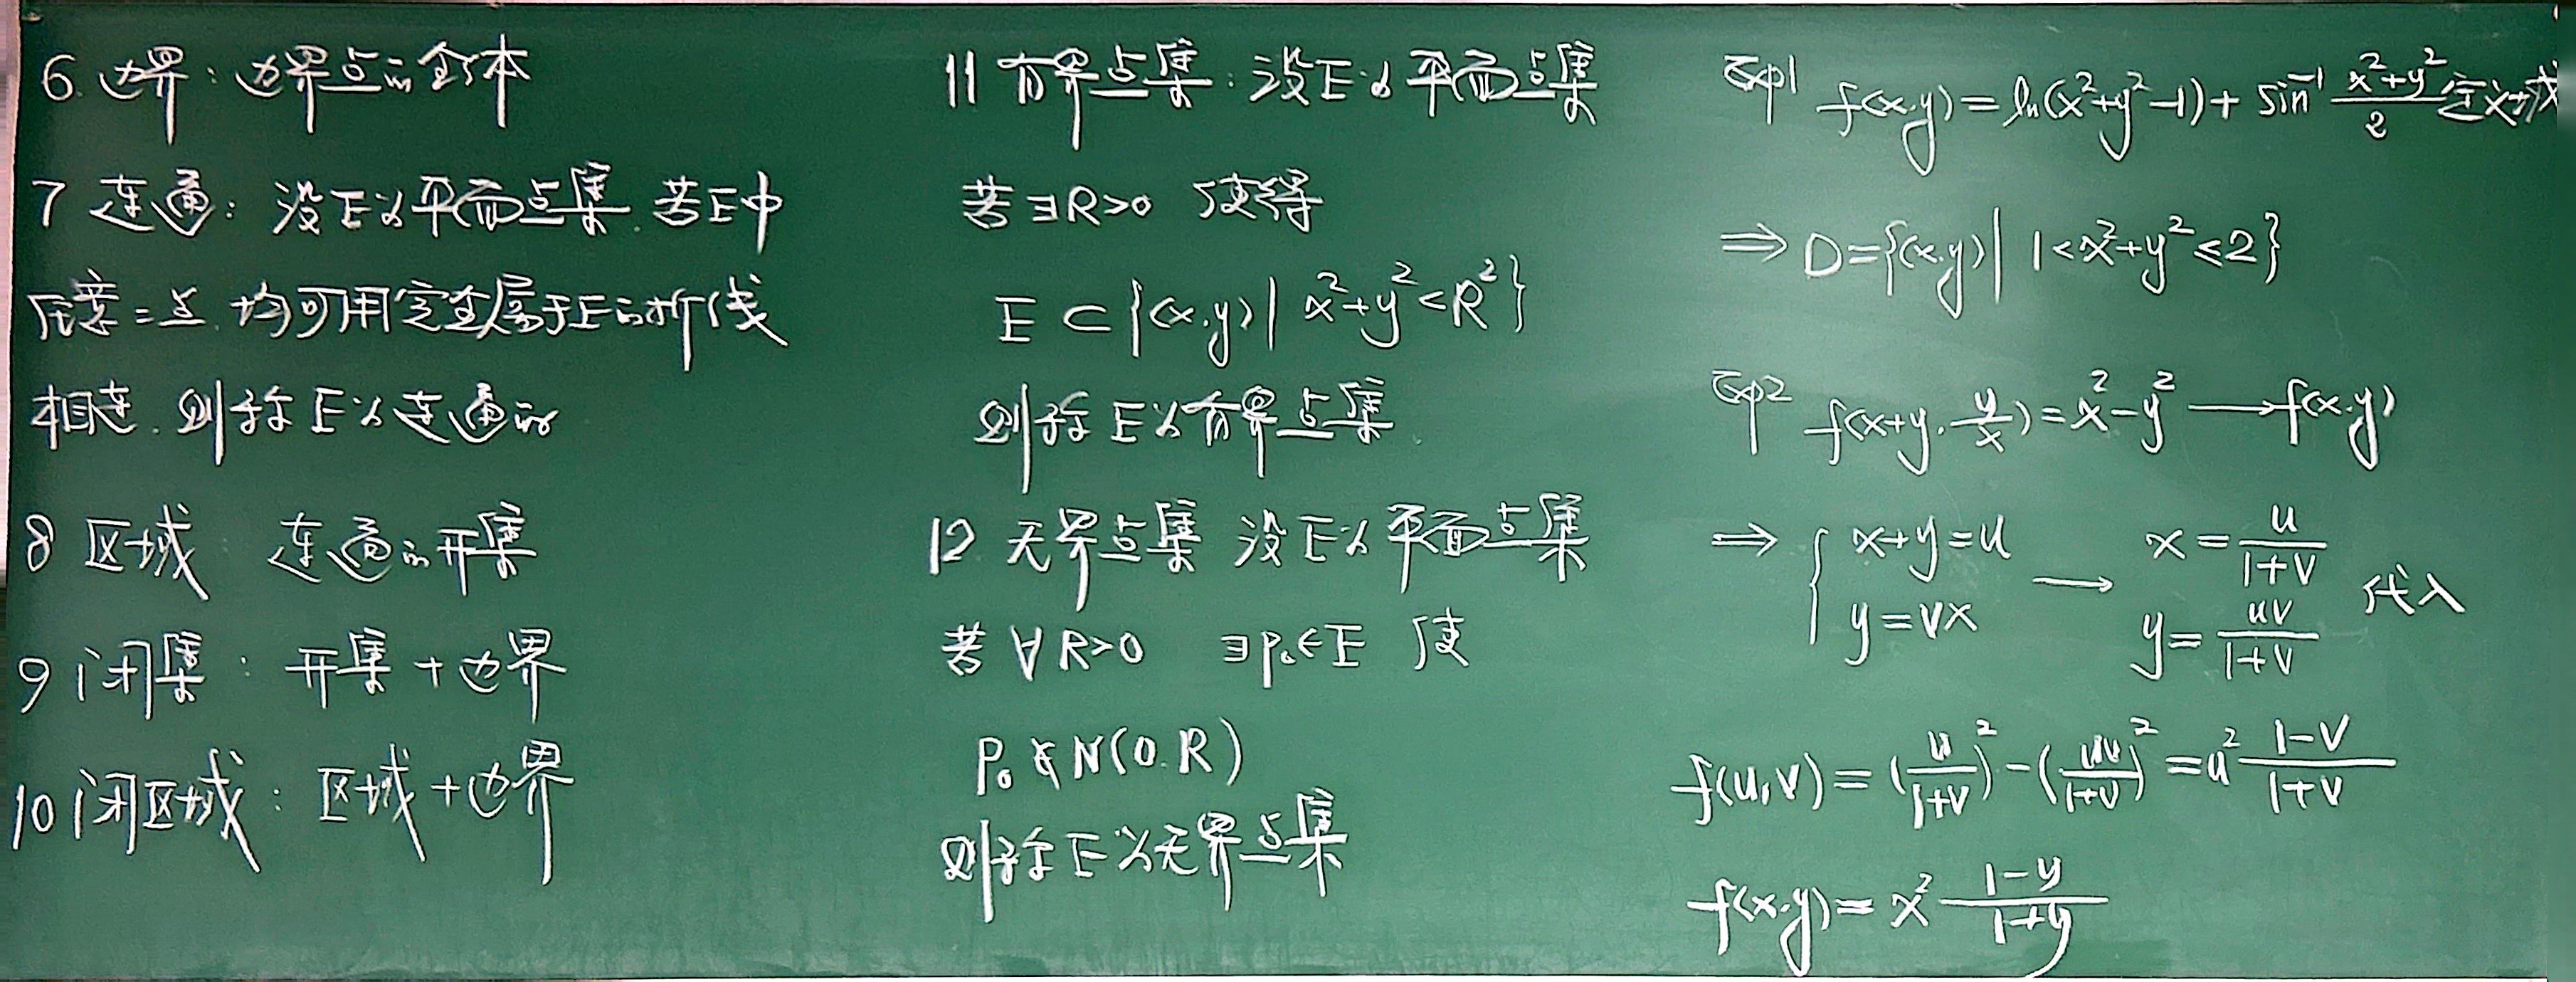 6. 边界：边界点的全体
7 连通：设E为平面点集. 若E中
任意二点.均可用完全属于E的折线
相连.则称E为连通的
8 区域 连通的开集
9 闭集：开集+边界
10 闭区域：区域+边界
11 有界点集：设E为平面点集
若∃R>0 使得
E⊂{(x.y)| x²+y²<R²}
则称E为有界点集.
12. 无界点集 设E为平面点集
若∀R>0 ∃P₀∈E 使
P₀∉N(0.R)
则称E为无界点集
Exp1 f(x.y)=ln(x²+y²-1)+sin⁻¹ (x²+y²)/2 定义域
⇒ D={(x.y)| 1<x²+y²≤2}
Exp2 f(x+y.y/x)=x²-y² → f(x.y)
⇒ { x+y=u y=vx → x=u/(1+v) y=uv/(1+v) 代入
f(u,v)=(u/(1+v))²-(uv/(1+v))²=u² (1-v)/(1+v)
f(x.y)=x² (1-y)/(1+y)